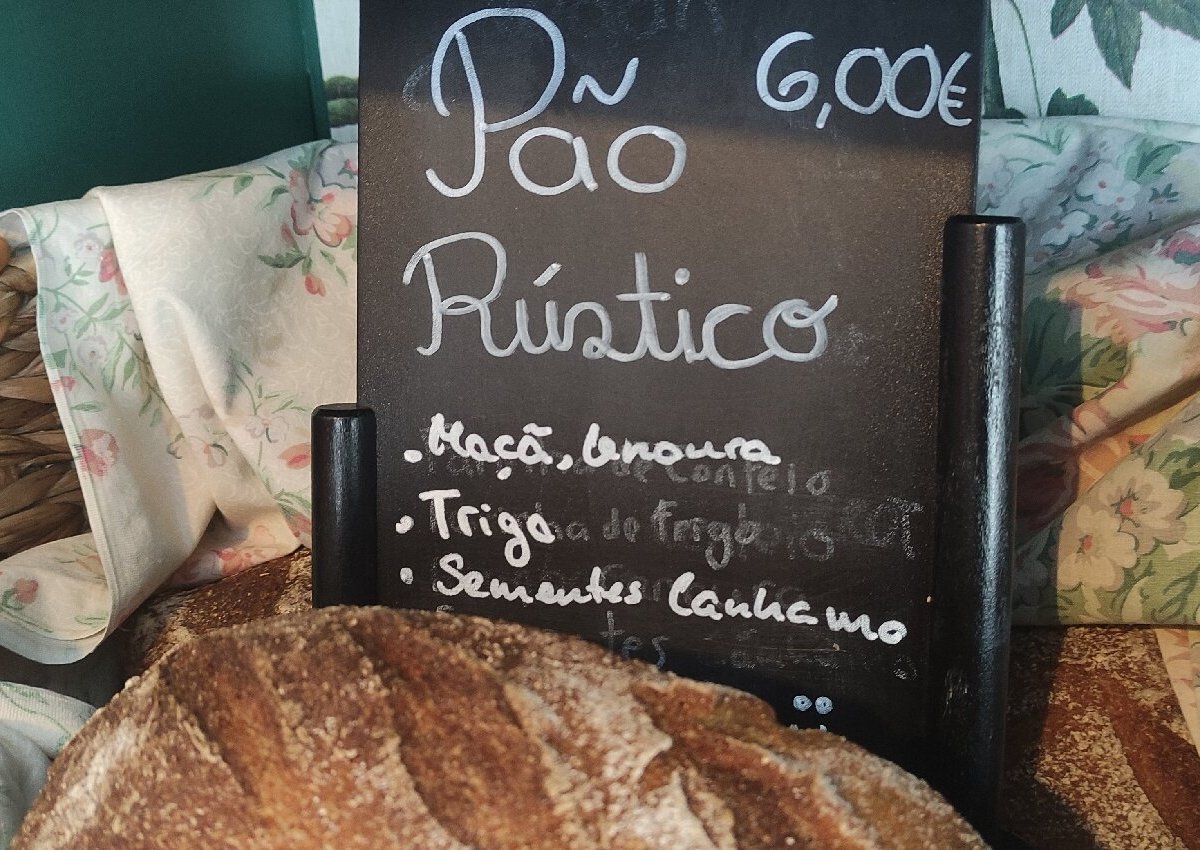 Pão 6,00€
Rústico
• Maçã, Cenoura
• Trigo
• Sementes Canhamo